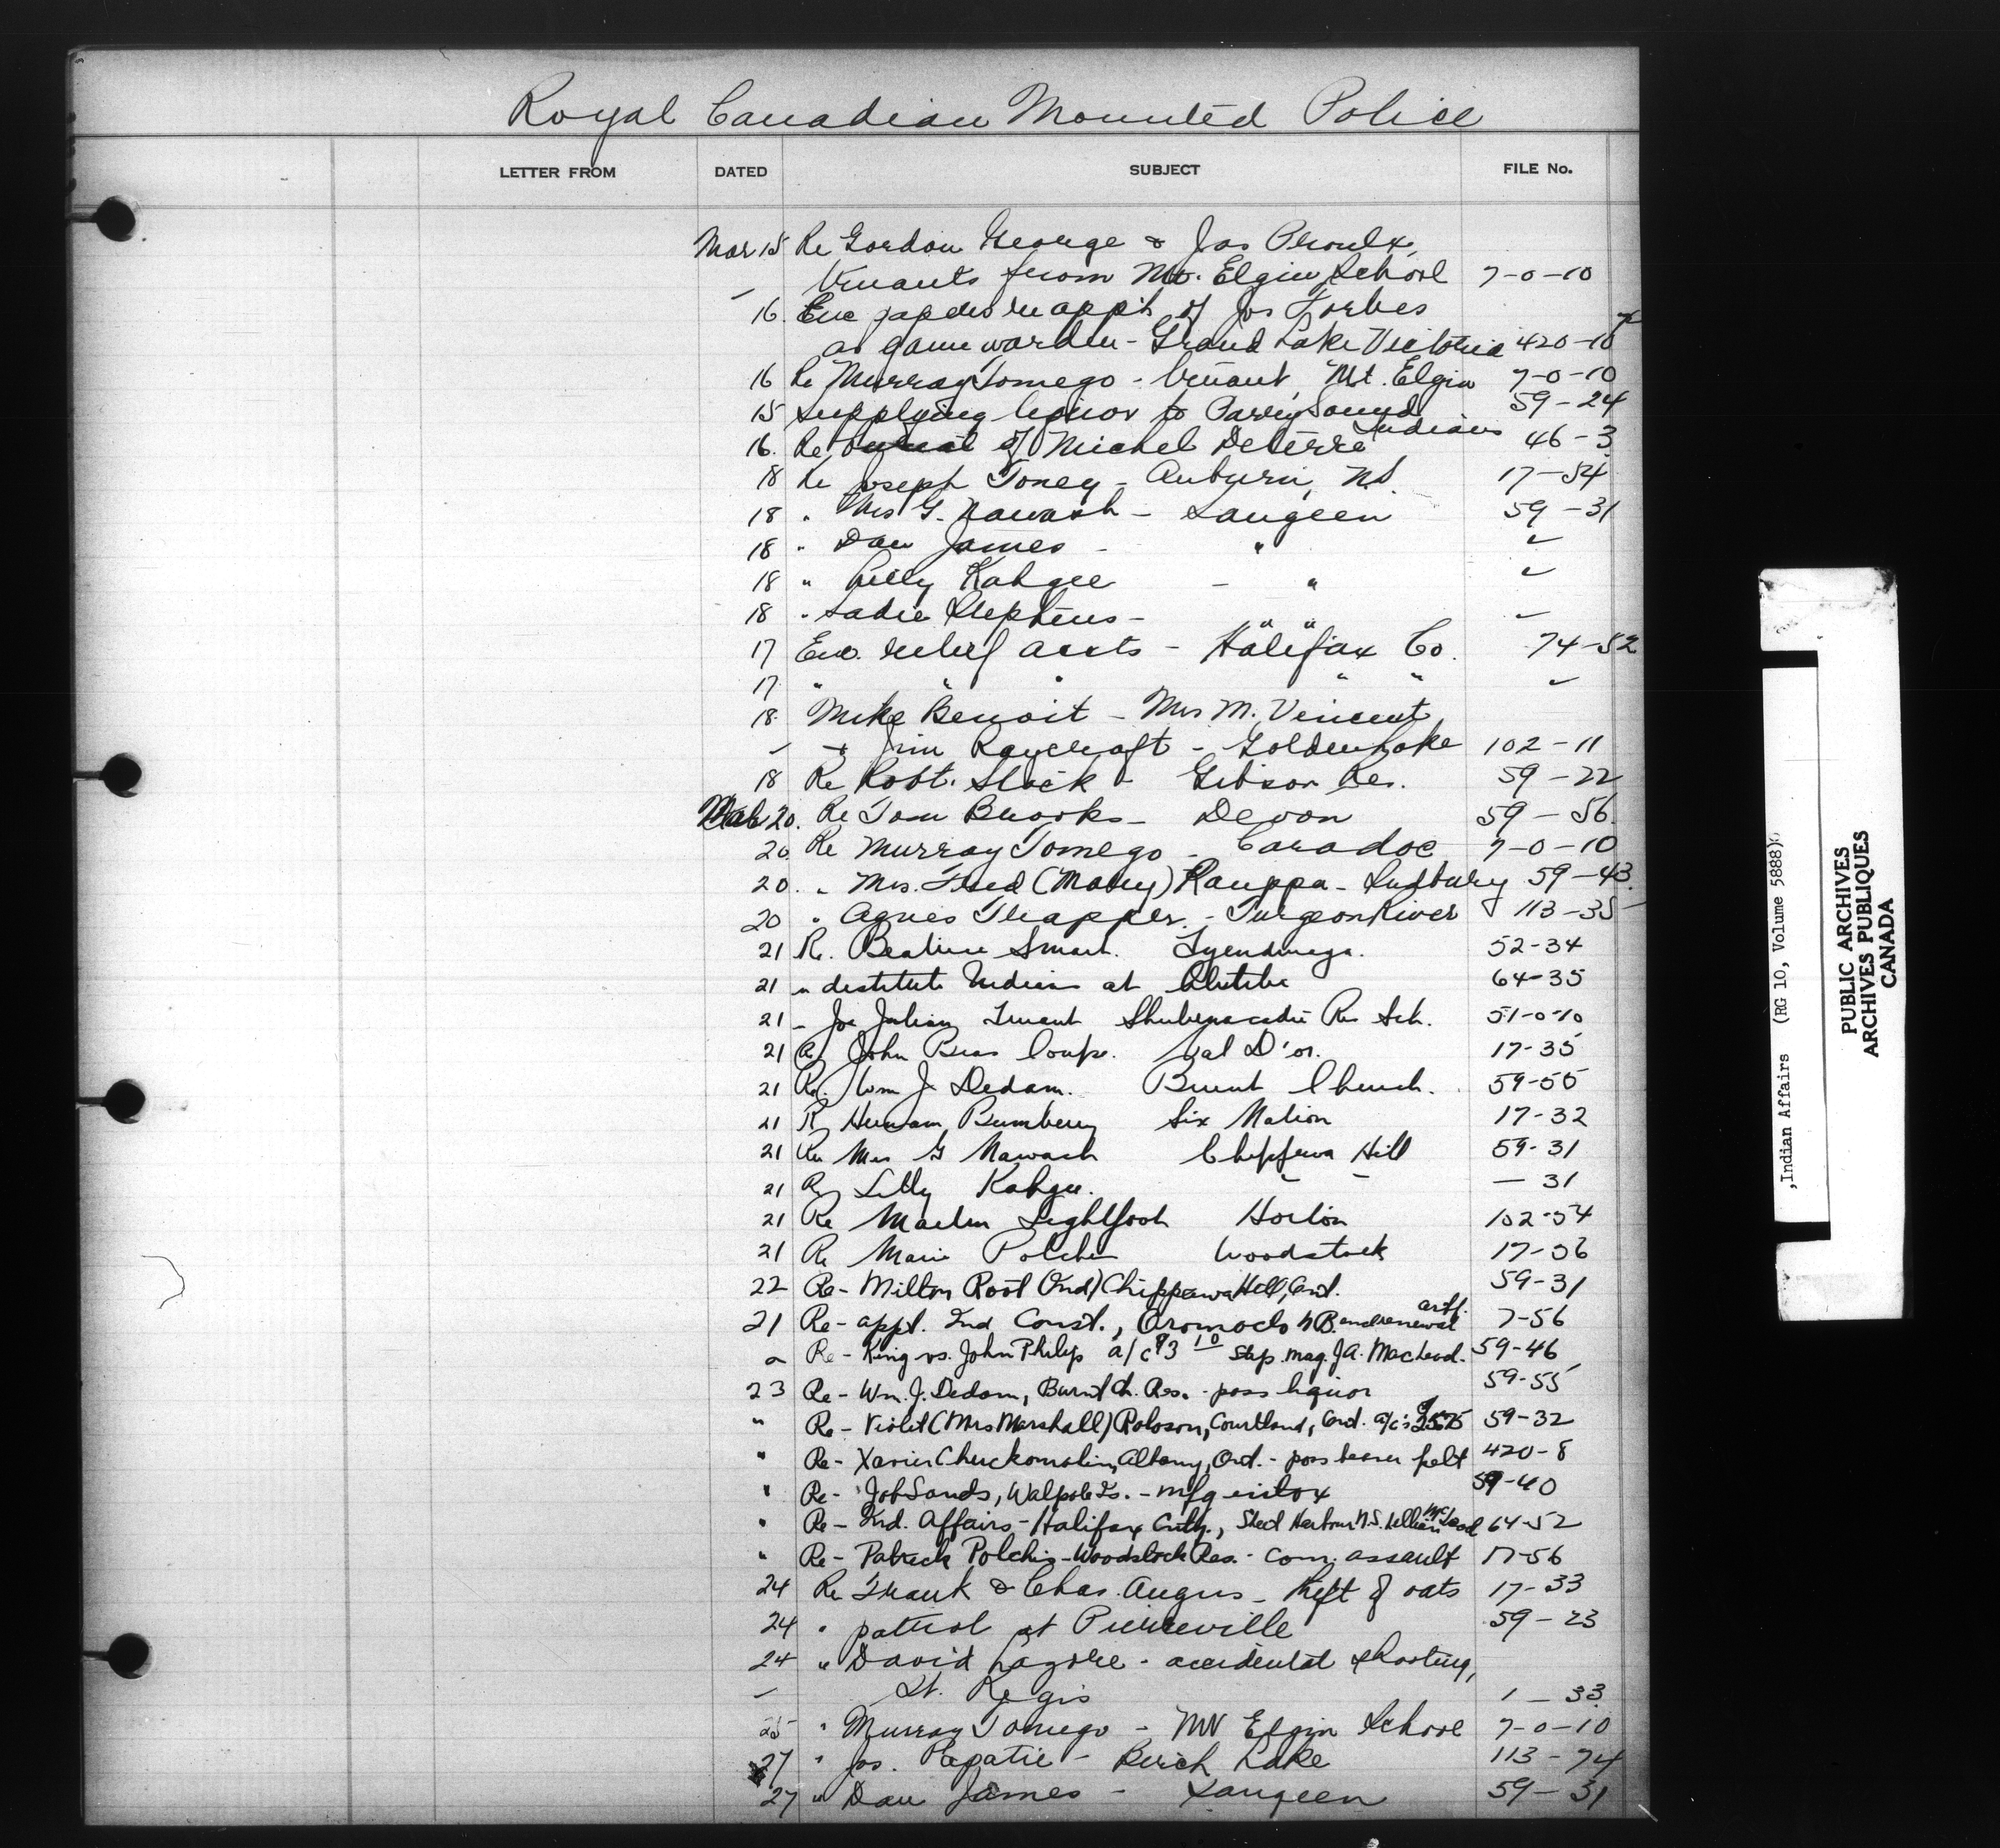 Royal Canadian Mounted Police
LETTER FROM DATED SUBJECT FILE No.
Mar 15 Re Gordon George & Jos Proulx,
Truants from Mt. Elgin School 7-0-10
16. Enc papers re app't of Jos Forbes
as game warden - Grand Lake Victoria 420-10
16 Re Murray Tomego - Truant, Mt. Elgin 7-0-10
15 Supplying liquor to Parry Sound Indians 59-24
16. Re burial of Michel Deterre 46-3
18 Re Joseph Toney - Auburn, N.S. 17-54
18 " Mrs G. Nawash - Saugeen 59-31
18 " Dan James - " "
18 " Lilly Kahgee - " "
18 " Sadie Stephens - " " "
17 Enc. relief accts - Halifax Co. 74-52
17 " " " " " "
18. Mike Benoit - Mrs M. Vincent,
& Jim Raycraft - Golden Lake 102-11
18 Re Robt. Stock - Gibson Res. 59-22
Mar 20. Re Tom Brooks - Devon 59-56
20. Re Murray Tomego - Caradoc 7-0-10
20. " Mrs. Fred (Mary) Rauppa - Sudbury 59-43
20 " Agnes Trapper - Turgeon River 113-35
21 Re. Beatrice Smart. Tyendinaga. 52-34
21 " destitute Indians at Abitibi 64-35
21 - Joe Julian Truant Shubenacadie Res Sch. 51-0-10
21 Re John Bear Coupe. Val D'or. 17-35
21 Re. Wm J. Dedam. Burnt Church. 59-55
21 Re Herman Bumberry Six Nation 17-32
21 Re Mrs G Nawash Chippewa Hill 59-31
21 Re Lilly Kahgee. - - - 31
21 Re Martin Lightfoot Horton 102-54
21 Re Marie Polches Woodstock 17-56
22 Re - Milton Root (Ind) Chippewa Hill, Ont. 59-31
21 Re - appt. Ind Const., Oromocto N.B. and renewal 7-56
Re - King vs. John Philip a/c $3 10 Stip. mag. J.A. Macleod. 59-46
23 Re - Wm. J. Dedam, Burnt Ch. Res. - poss liquor 59-55
" Re - Violet (Mrs Marshall) Roloson, Courtland, Ont. a/c's 59-32
" Re - Xavier Chuckomolin, Albany, Ont. - poss beaver pelt 420-8
" Re - Job Sands, Walpole Is. - mfg intox 59-40
" Re - Ind. Affairs - Halifax Cnty., Sheet Harbour N.S. McLeod 64-52
" Re - Patrick Polchis - Woodstock Res. - com. assault 17-56
24 Re Frank & Chas. Angus - theft of oats 17-33
24 " patrol at Pierreville 59-23
24 " David Lazore - accidental shooting,
St. Regis 1-33
25 " Murray Tomego - Mt Elgin School 7-0-10
27 " Jos. Papatie - Birch Lake 113-74
27 " Dan James - Saugeen 59-31
,Indian Affairs (RG 10, Volume 5888)
PUBLIC ARCHIVES
ARCHIVES PUBLIQUES
CANADA